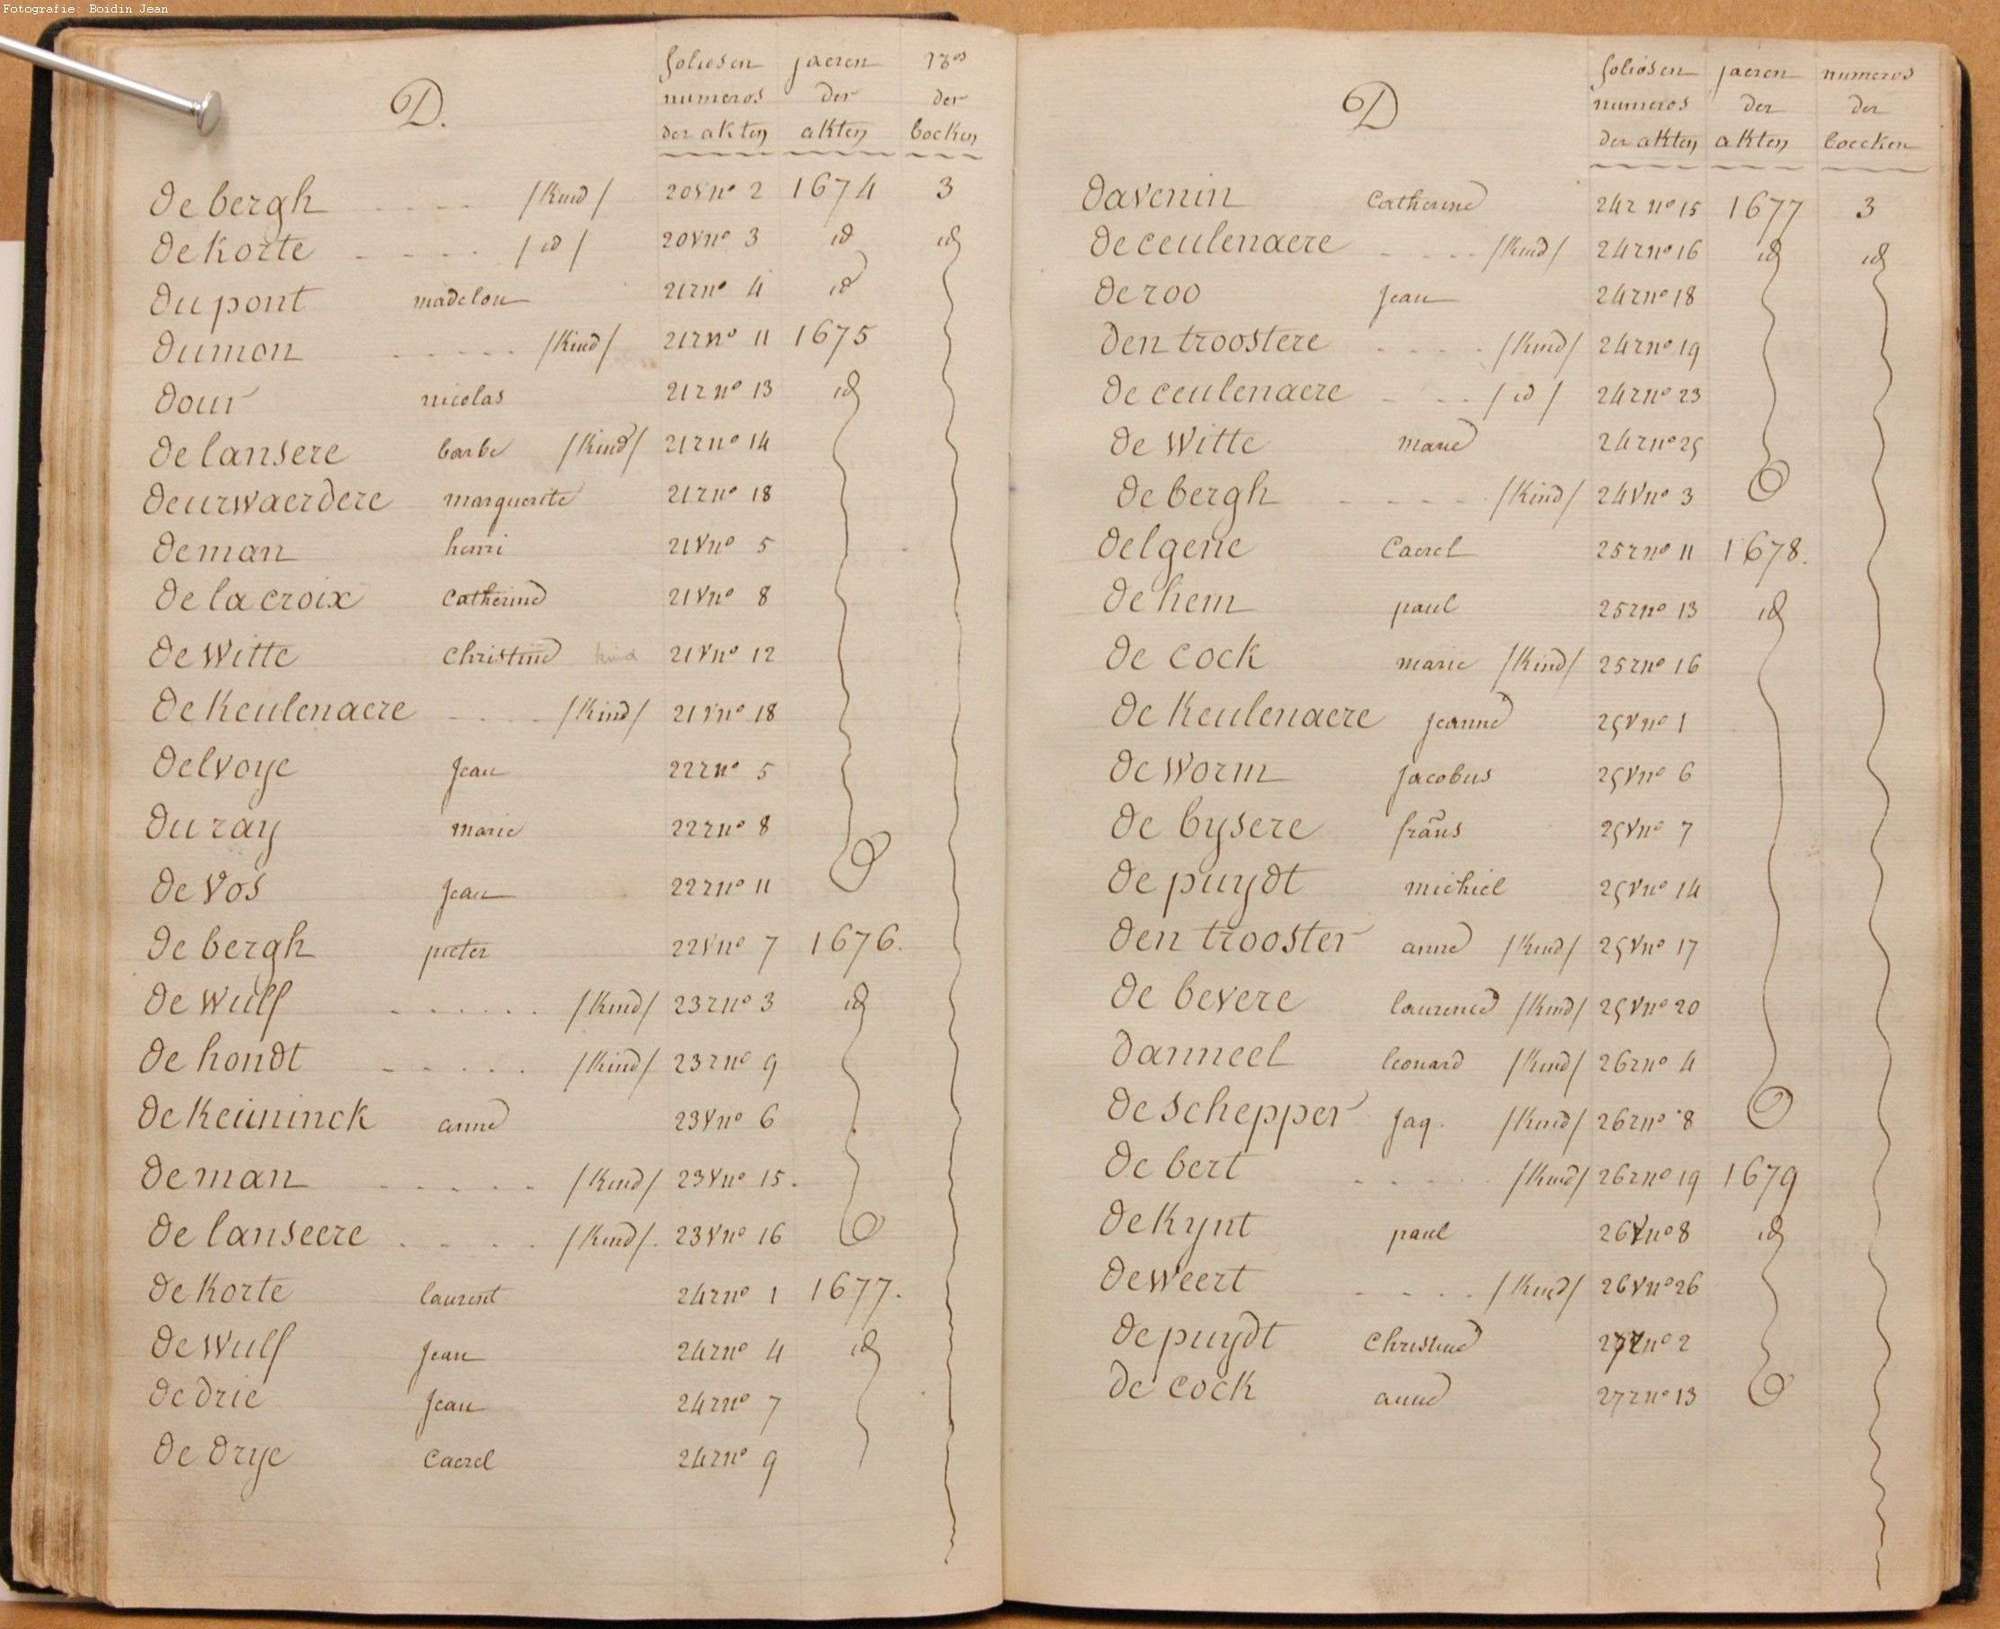 Fotografie: Boidin Jean
D.
folios en jaeren nos
numeros der der
der akten akten boeken
de bergh /kind/ 20v no 2 1674 3
de korte /id/ 20v no 3 id id
du pont madelon 21r no 4 id
dumon /kind/ 21r no 11 1675
dour nicolas 21r no 13 id
de lansere barbe /kind/ 21r no 14
deurwaerdere marguerite 21r no 18
deman henri 21v no 5
de la croix catherine 21v no 8
de witte christine kind 21v no 12
de keulenaere /kind/ 21v no 18
delvoye jean 22r no 5
du ray marie 22r no 8
de vos jean 22r no 11
de bergh pieter 22v no 7 1676.
de wulf /kind/ 23r no 3 id
de hondt /kind/ 23r no 9
de keuninck anne 23v no 6
deman /kind/ 23v no 15.
de lanseere /kind/. 23v no 16
de korte laurent 24r no 1 1677.
de wulf jean 24r no 4 id
de drie jean 24r no 7
de drye caerel 24r no 9
D
folios en jaeren numeros
numeros der der
der akten akten boecken
davenin catherine 24r no 15 1677 3
de ceulenaere /kind/ 24r no 16 id id
de roo jean 24r no 18
den troostere /kind/ 24r no 19
de ceulenaere /id/ 24r no 23
de witte marie 24r no 25
de bergh /kind/ 24v no 3
delgene caerel 25r no 11 1678.
de hem paul 25r no 13 id
de cock marie /kind/ 25r no 16
de keulenaere jeanne 25v no 1
de worm jacobus 25v no 6
de bysere frans 25v no 7
de puydt michiel 25v no 14
den trooster anne /kind/ 25v no 17
de bevere laurence /kind/ 25v no 20
danneel leonard /kind/ 26r no 4
de schepper jaq. /kind/ 26r no 8
de bert /kind/ 26r no 19 1679
de kynt paul 26v no 8 id
de weert /kind/ 26v no 26
de puydt christine 27r no 2
de cock anne 27r no 13